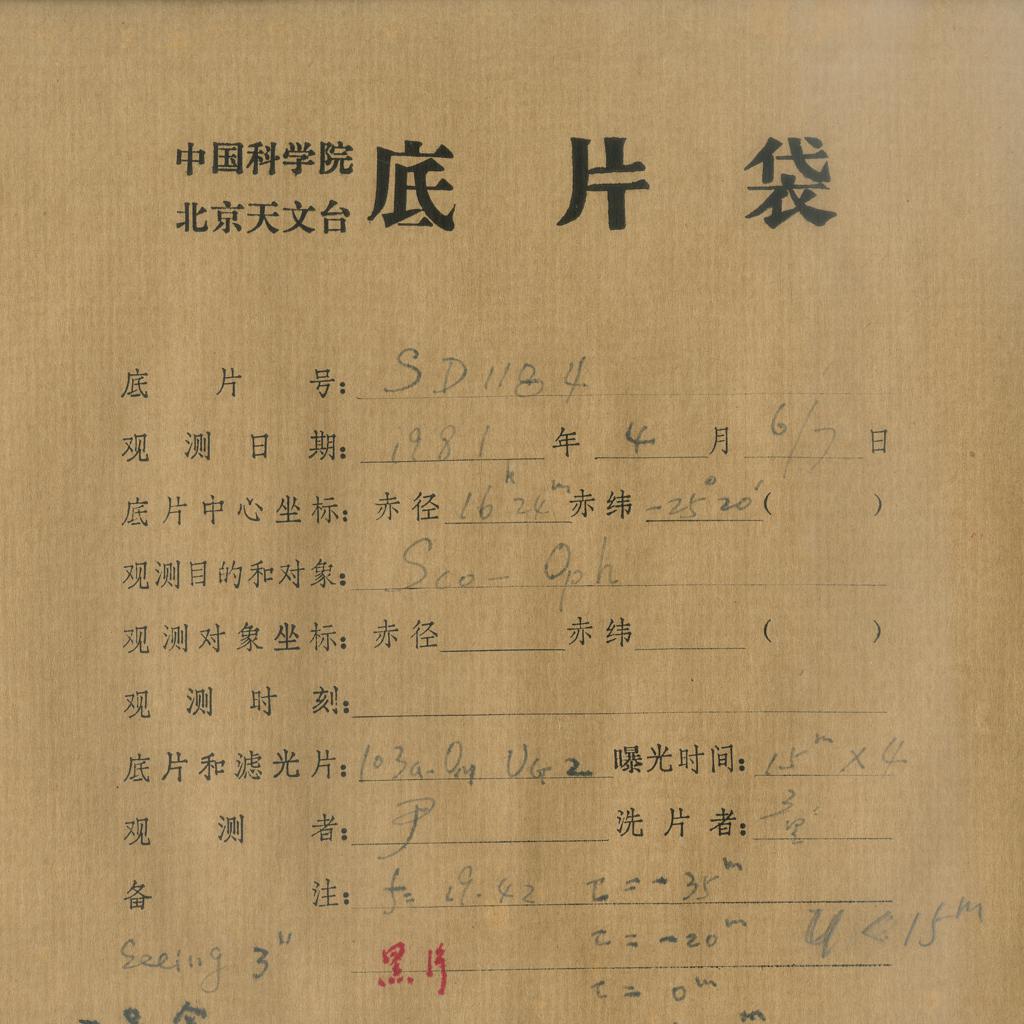 中国科学院
北京天文台 底片袋
底片号: SD1184
观测日期: 1981年 4月 6/7日
底片中心坐标: 赤径 16ʰ24ᵐ 赤纬 -25°20′ ( )
观测目的和对象: Sco - Oph
观测对象坐标: 赤径 赤纬 ( )
观测时刻:
底片和滤光片: 103a-O UG2 曝光时间: 15ᵐ×4
观测者: 尹 洗片者:
备注: f= 19.42 τ=-35ᵐ
Seeing 3″ 黑片 τ=-20ᵐ U<15ᵐ
τ= 0ᵐ